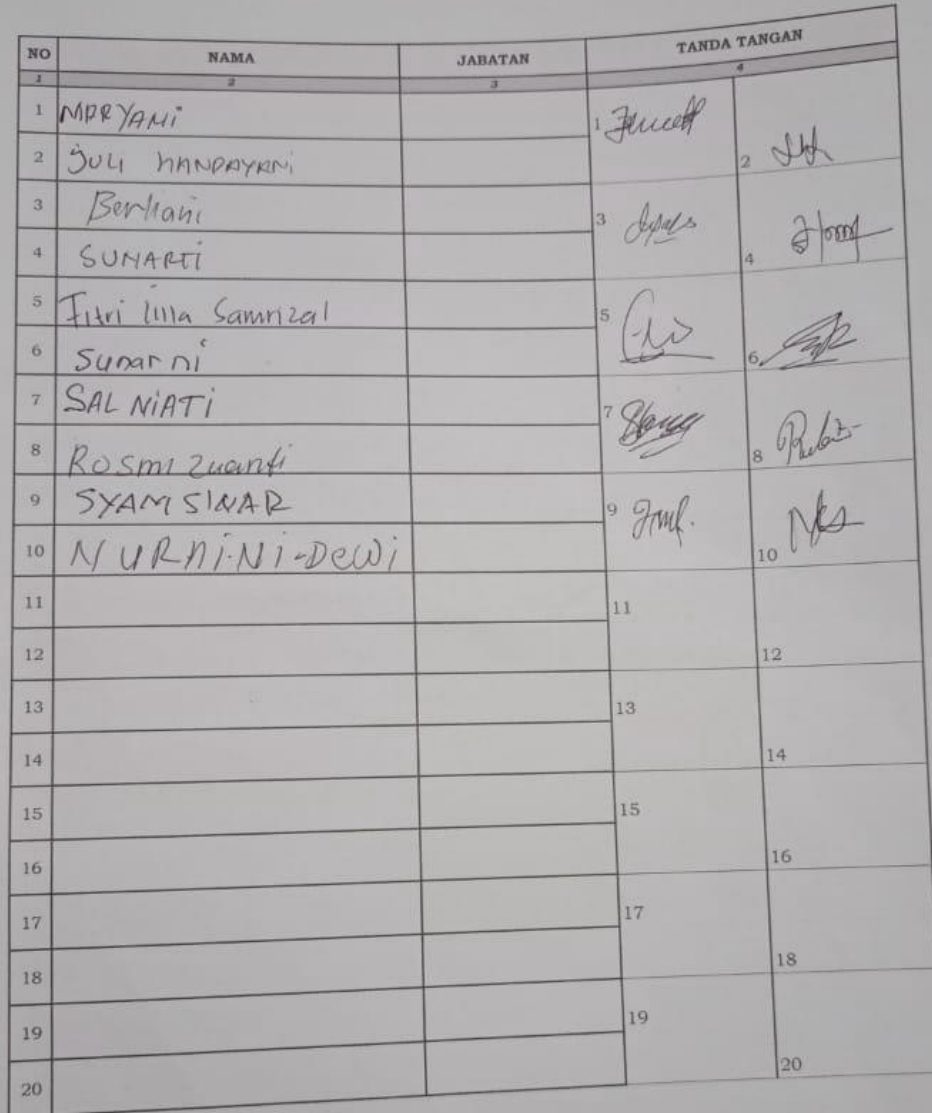 NO NAMA JABATAN TANDA TANGAN
1 2 3 4
1 MARYAMI 1
2 JULI HANDAYANI 2
3 Berliani 3
4 SUNARTI 4
5 Fitri Lilla Samrizal 5
6 Sunarni 6
7 SALNIATI 7
8 Rosmizuanti 8
9 SYAMSINAR 9
10 NURAi.Ni-Dewi 10
11 11
12 12
13 13
14 14
15 15
16 16
17 17
18 18
19 19
20 20